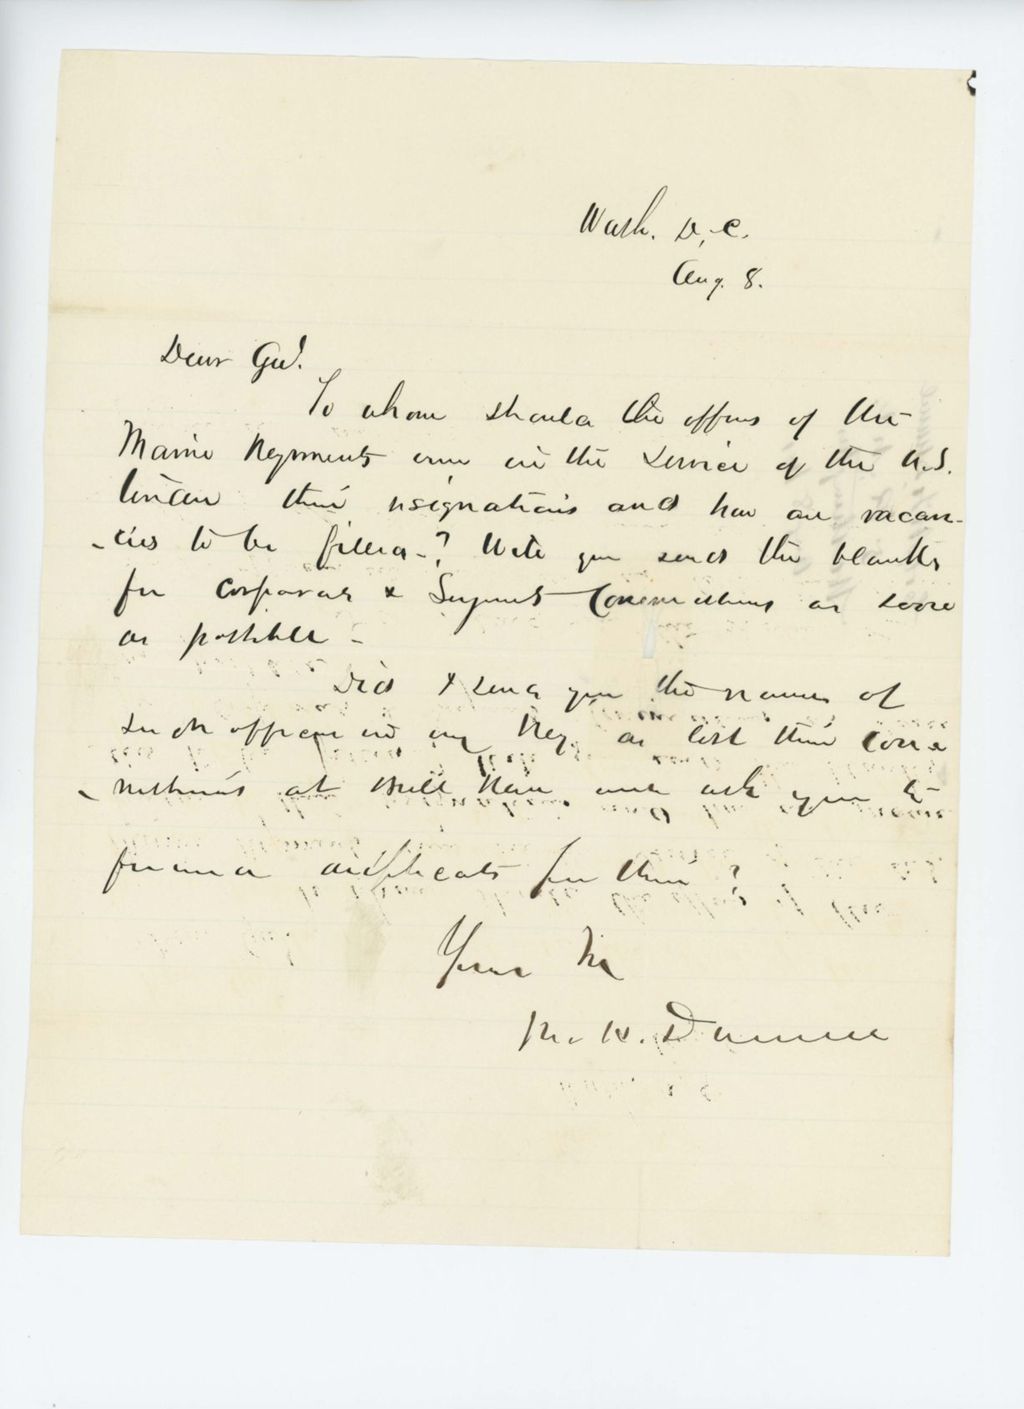 Wash. D.C.
Aug. 8.
Dear Gen'l.
To whom should the officers of the
Maine Regiments now in the service of the U.S.
tender their resignations and how are vacan-
-cies to be filled-? Will you send the blanks
for corporals & Sergeants Commissions as soon
as possible-
Did I send you the names of
such officers in my Reg. as lost their com
-missions at Bull Run and ask you to
forward duplicates for them?
Yours Tr
M. H. Dunnell